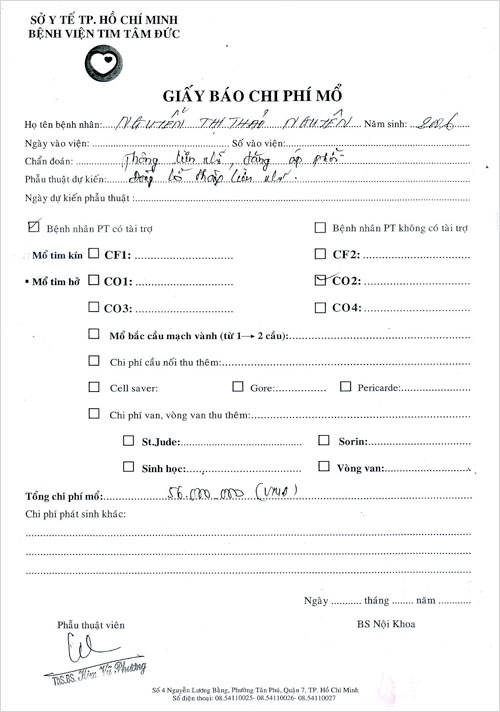 SỞ Y TẾ TP. HỒ CHÍ MINH
BỆNH VIỆN TIM TÂM ĐỨC
GIẤY BÁO CHI PHÍ MỔ
Họ tên bệnh nhân: NGUYỄN THỊ THẢO NGUYÊN Năm sinh: 2006
Ngày vào viện: Số vào viện:
Chẩn đoán: Thông liên nhĩ, tăng áp phổi
Phẫu thuật dự kiến: Đóng lỗ thông liên nhĩ.
Ngày dự kiến phẫu thuật :
Bệnh nhân PT có tài trợ Bệnh nhân PT không có tài trợ
Mổ tim kín CF1: CF2:
▪ Mổ tim hở CO1: CO2:
CO3: CO4:
Mổ bắc cầu mạch vành (từ 1→ 2 cầu):
Chi phí cầu nối thu thêm:
Cell saver: Gore: Pericarde:
Chi phí van, vòng van thu thêm:
St.Jude: Sorin:
Sinh học: Vòng van:
Tổng chi phí mổ: 56.000.000 (VNĐ)
Chi phí phát sinh khác:
Ngày .......... tháng ........ năm ..........
Phẫu thuật viên BS Nội Khoa
ThS.BS. Kim Vũ Phương
Số 4 Nguyễn Lương Bằng, Phường Tân Phú, Quận 7, TP. Hồ Chí Minh
Số điện thoại: 08.54110025- 08.54110026- 08.54110027